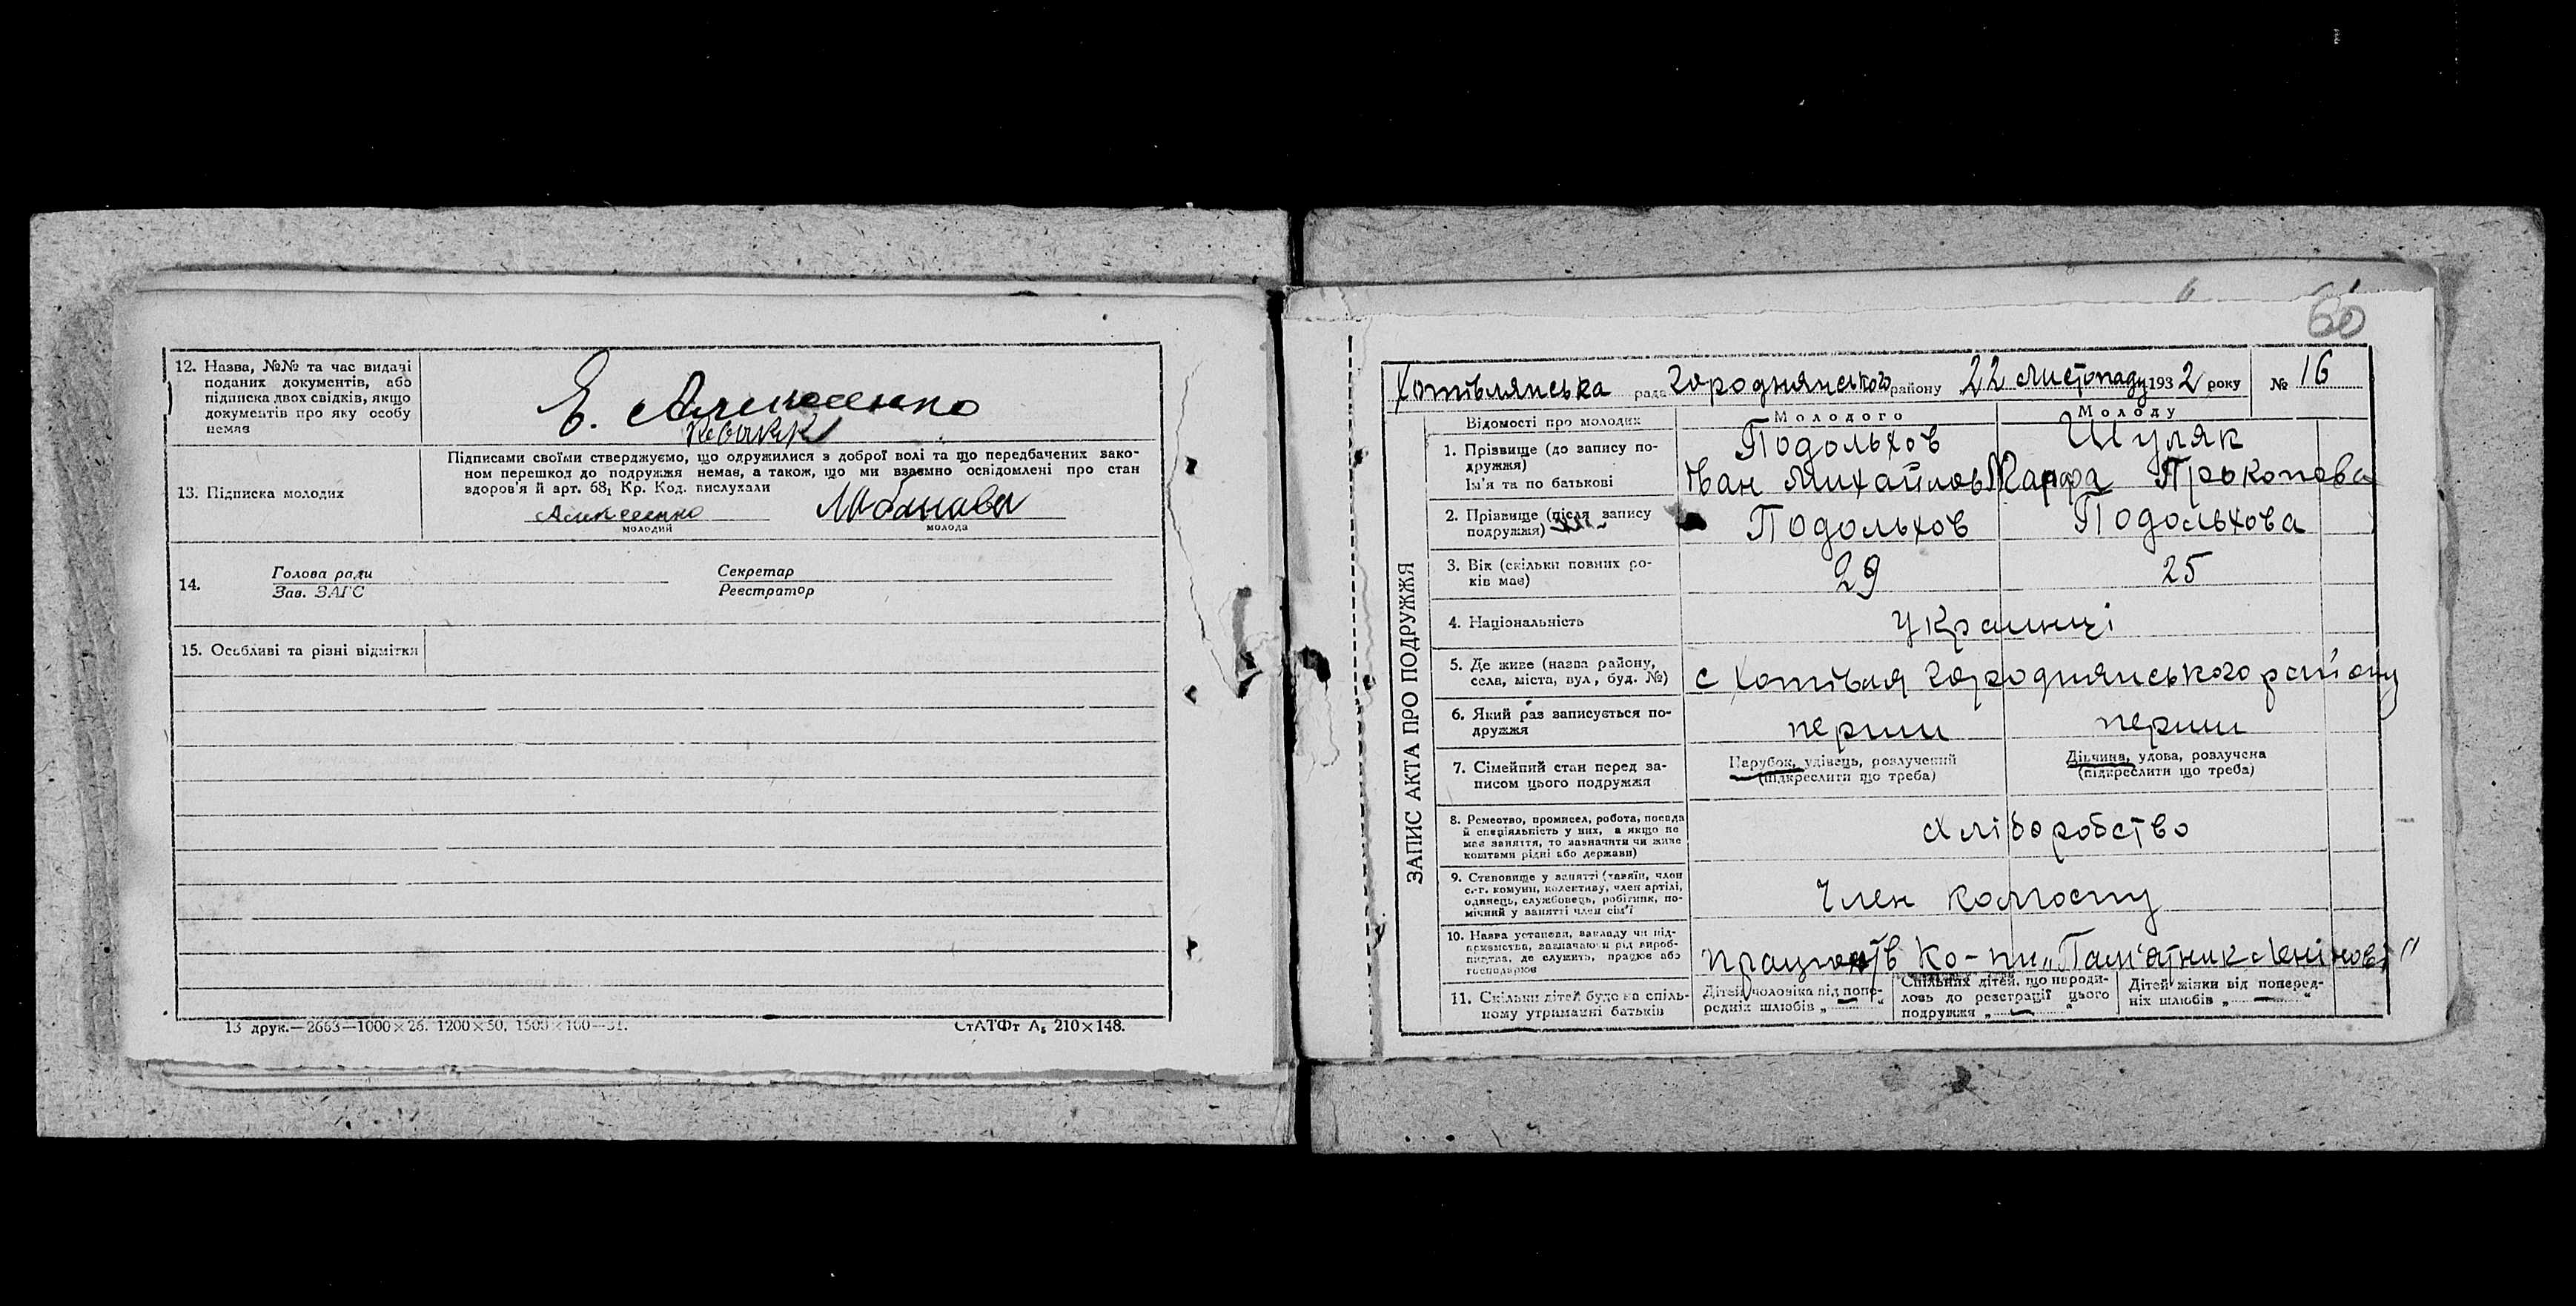 12. Назва, №№ та час видачі
поданих документів, або
підписка двох свідків, якщо
документів про яку особу
немає
Е. Алексеенко
13. Підписка молодих
Підписами своїми стверджуємо, що одружилися з доброї волі та що передбачених зако-
ном перешкод до подружжя немає, а також, що ми взаємно освідомлені про стан
здоров'я й арт. 68₁ Кр. Код. вислухали
Алексеенко
молодий
молода
14.
Голова ради
Зав. ЗАГС
Секретар
Реєстратор
15. Особливі та різні відмітки
13 друк.—2663—1000×26. 1200×50, 1500×100—31.
СтАТФт А₅ 210×148.
60
ЗАПИС АКТА ПРО ПОДРУЖЖЯ
Хотівлянська рада Городнянського району 22 Листопаду 1932 року № 16
Відомості про молодих
Молодого
Молоду
1. Прізвище (до запису по-
дружжя)
Ім'я та по батькові
Подольхов
Іван Михайлов
Шуляк
Марфа Прокопова
2. Прізвище (після запису
подружжя)
Подольхов
Подольхова
3. Вік (скільки повних ро-
ків має)
29
25
4. Національність
Українці
5. Де живе (назва району,
села, міста, вул, буд. №)
с Хотівля Городнянського району
6. Який раз записується по-
дружжя
перший
перший
7. Сімейний стан перед за-
писом цього подружжя
Парубок, удівець, розлучений
(підкреслити що треба)
Дівчина, удова, розлучена
(підкреслити що треба)
8. Ремество, промисел, робота, посада
й спеціяльність у них, а якщо не
має заняття, то зазначити чи живе
коштами рідні або держави)
хліборобство
9. Становище у занятті (хазяїн, член
с.-г. комуни, колективу, член артілі,
одинець, службовець, робітник, по-
мічний у занятті член сім'ї
Член колгоспу
10. Назва установи, закладу чи під-
приємства, зазначаючи рід вироб-
ництва, де служить, працює або
господарює
Ко-пи „Пам'ятник Ленінові"
11. Скільки дітей буде на спіль-
ному утриманні батьків
Дітей чоловіка від попе-
редніх шлюбів „ — "
Спільних дітей, що народи-
лось до реєстрації цього
подружжя „ — "
Дітей жінки від поперед-
ніх шлюбів „ — "